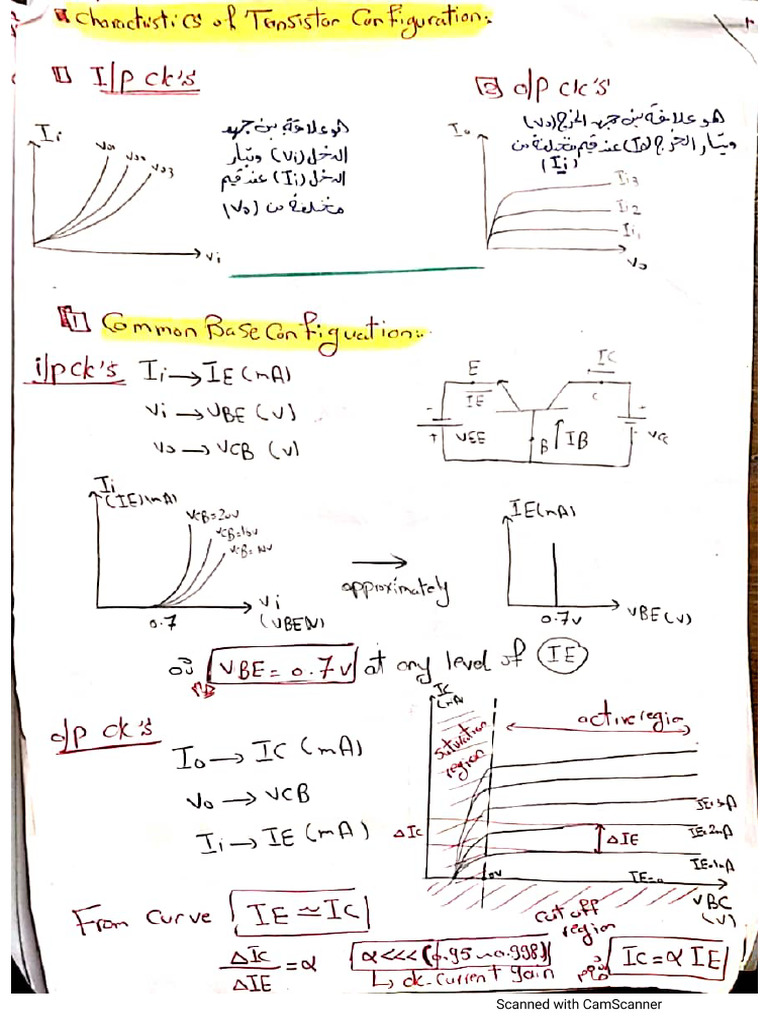 Characteristics of Transistor Configuration:-
1 I/p ck's
2 o/p ck's
هو علاقة بين جهد
الدخل (Vi) وتيار
الدخل (Ii) عند قيم
مختلفة من (Vo)
هو علاقة بين جهد الخرج (Vo)
وتيار الخرج (Io) عند قيم مختلفة من
(Ii)
Ii
Vo1
Vo2
Vo3
Vi
Io
Ii3
Ii2
Ii1
Vo
1 Common Base Configuation:-
i/p ck's Ii → IE (mA)
Vi → VBE (V)
Vo → VCB (V)
E
IE
VEE
B
IB
IC
C
VCC
Ii
(IE)(mA)
VCB=20V
VCB=10V
VCB=1V
0.7
Vi
(VBE)(V)
approximately
IE(mA)
0.7V
VBE(V)
VBE = 0.7V at any level of IE
o/p ck's
Io → IC (mA)
Vo → VCB
Ii → IE (mA)
IC
(mA)
saturation
region
active region
ΔIC
ΔIE
IE=3mA
IE=2mA
IE=1mA
IE=0
0V
VBC
(V)
cut off
region
From curve IE ≃ IC
ΔIC
ΔIE
= α
α<<<(0.95~0.998)
↳ dc-current gain
IC = α IE
Scanned with CamScanner